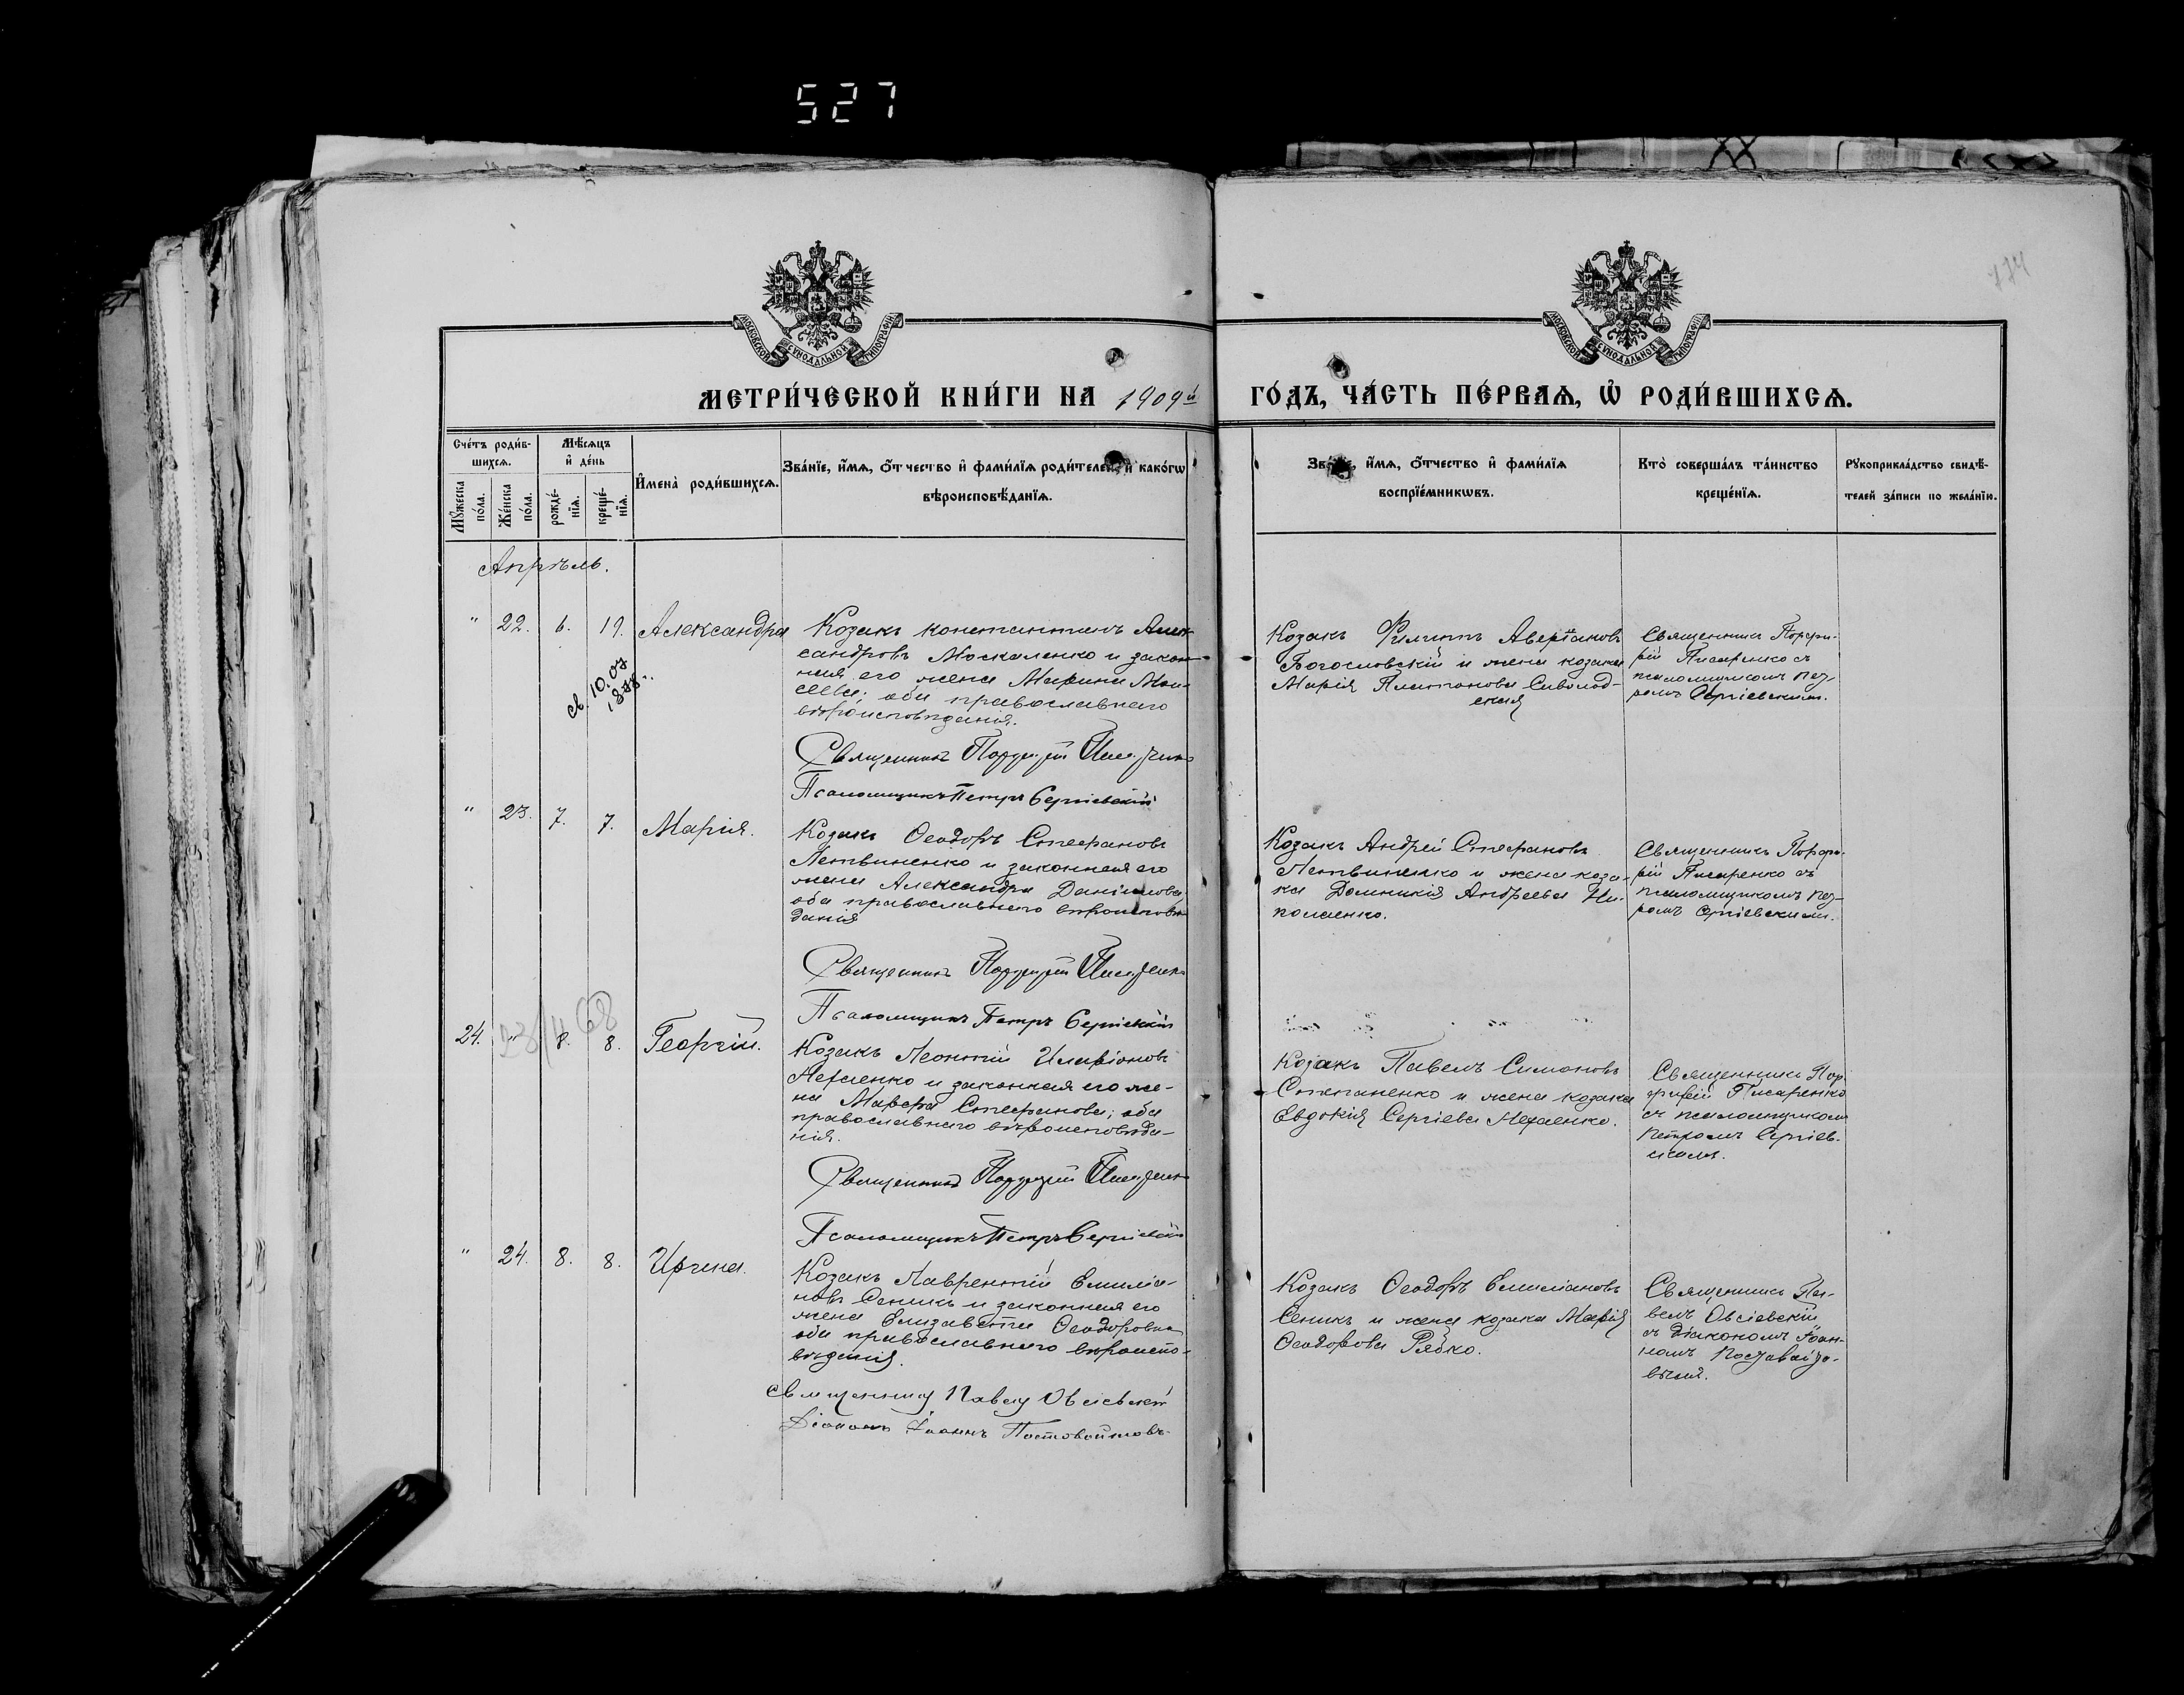 527
174
МОСКОВСКОЙ СѴНОДАЛЬНОЙ ТИПОГРАФІИ
МОСКОВСКОЙ СѴНОДАЛЬНОЙ ТИПОГРАФІИ
МЕТРИ́ЧЕСКОЙ КНИ́ГИ НА 1909й ГО́ДЪ, ЧА́СТЬ ПЕ́РВАѦ, Ѽ РОДИ́ВШИХСѦ.
Сче́тъ роди́в-
шихсѧ.
Мꙋ́жеска по́ла.
Же́нска по́ла.
Мѣ́сѧцъ
и҆ де́нь
рожде́-
нїѧ.
креще́-
нїѧ.
И҆мена̀ роди́вшихсѧ.
Зва́нїе, и҆́мѧ, ѻ҆́тчество и҆ фами́лїѧ роди́телей, и҆ како́гѡ
вѣроисповѣ́данїѧ.
Зва́нїе, и҆́мѧ, ѻ҆́тчество и҆ фами́лїѧ
воспрїе́мникѡвъ.
Кто̀ соверша́лъ та́инство
креще́нїѧ.
Рꙋкоприкла́дство свидѣ́-
телей за́писи по жела́нїю.
Апрѣль.
" 22. 6. 19. Александра
св. 10.07
Козакъ Константинъ Алек-
сандровъ Москаленко и закон-
ная его жена Марина Мои-
сеева; оба православнаго
вѣроисповѣданія.
Священникъ Порфирій Писаренко
Псаломщикъ Петръ Сергіевскій
Козакъ Филиппъ Аверіановъ
Богословскій и жена козака
Марія Платонова Сиволод-
ская
Священникъ Порфи-
рій Писаренко съ
псаломщикомъ Пет-
ромъ Сергіевскимъ.
" 23. 7. 7. Марія.
Козакъ Ѳеодоръ Стефановъ
Литвиненко и законная его
жена Александра Даніилова
оба православнаго вѣроисповѣ-
данія
Священникъ Порфирій Писаренко
Псаломщикъ Петръ Сергіевскій
Козакъ Андрей Стефановъ
Литвиненко и жена коза-
ка Домникія Андреева
Священникъ Порфи-
рій Писаренко съ
псаломщикомъ Пет-
ромъ Сергіевскимъ.
24. " 8. 8. Георгій.
Козакъ Леонтій Иларіоновъ
и законная его же-
на Мавра Стефанова; оба
православнаго вѣроисповѣда-
нія.
Священникъ Порфирій Писаренко
Псаломщикъ Петръ Сергіевскій
Козакъ Павелъ Симоновъ
Степаненко и жена козака
Евдокія Сергіева
Священникъ Пор-
фирій Писаренко
съ псаломщикомъ
Петромъ Сергіев-
скимъ.
" 24. 8. 8. Ирина.
Козакъ Лаврентій Емиліа-
новъ Сеникъ и законная его
жена Елизавета Ѳеодоровна
оба православнаго вѣроиспо-
вѣданія.
Священникъ Павелъ Овсіевскій
Діаконъ Іоаннъ Постовойтовъ
Козакъ Ѳеодоръ Емиліановъ
Сеникъ и жена козака Марія
Ѳеодорова Рябко.
Священникъ Па-
велъ Овсіевскій
съ діакономъ Іоан-
номъ Постовойто-
вымъ.